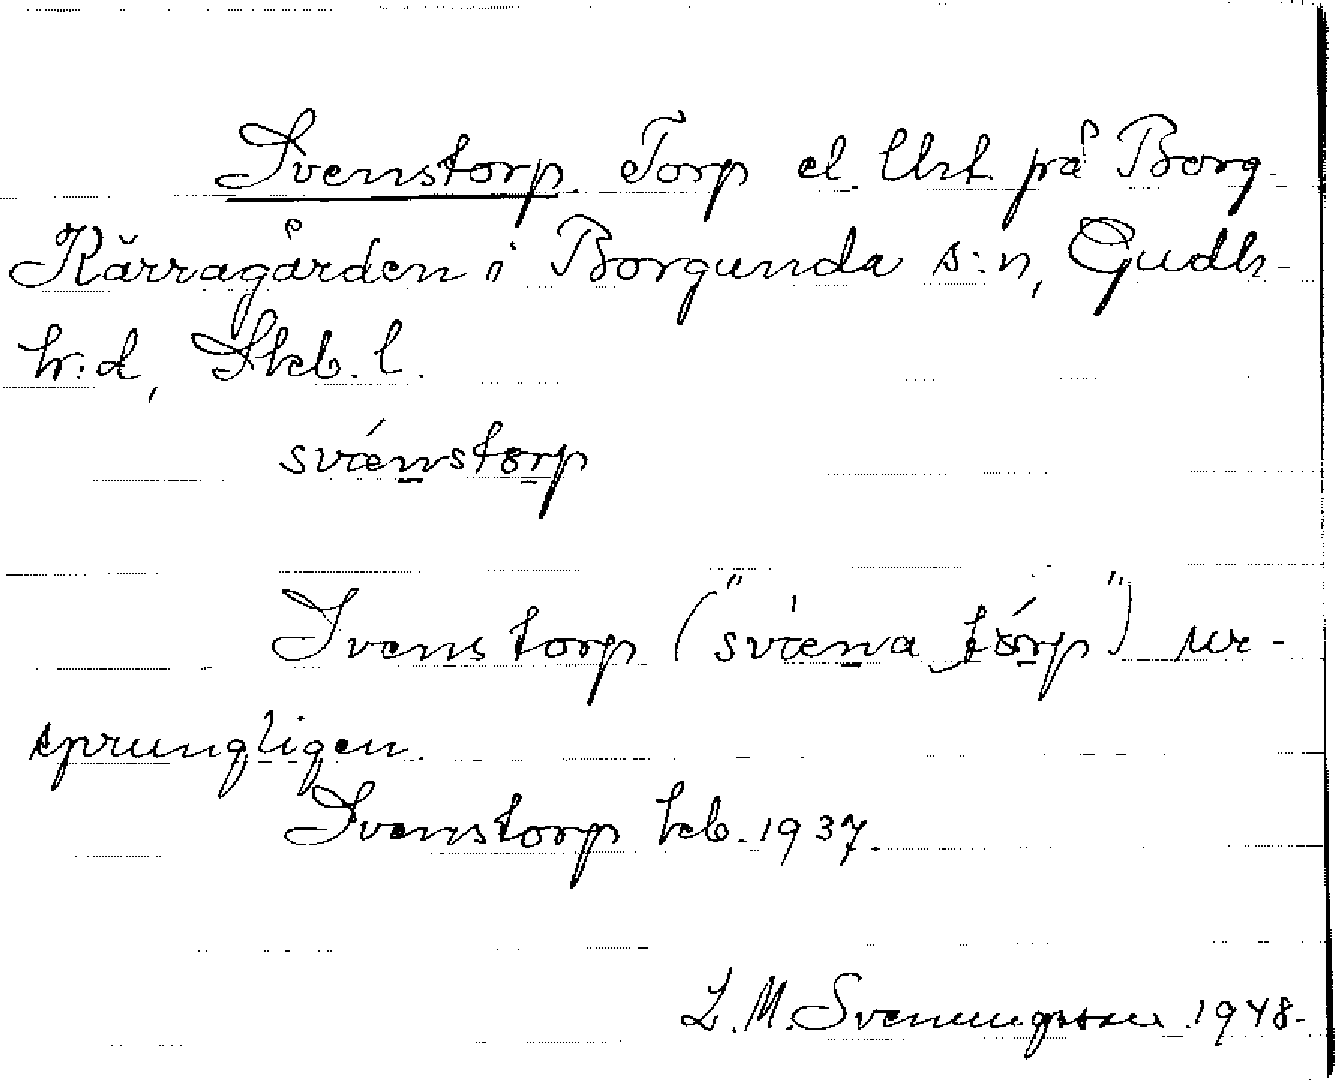 Svenstorp. Torp el. lht. på Borg-
Kärragården i Borgunda s:n, Gudh-
h:d, Skb. l.
svǽnstorp
Svenstorp ("svæna tórp") ur-
sprungligen.
Svenstorp kb. 1937.
L. M. Svenungsson 1948.